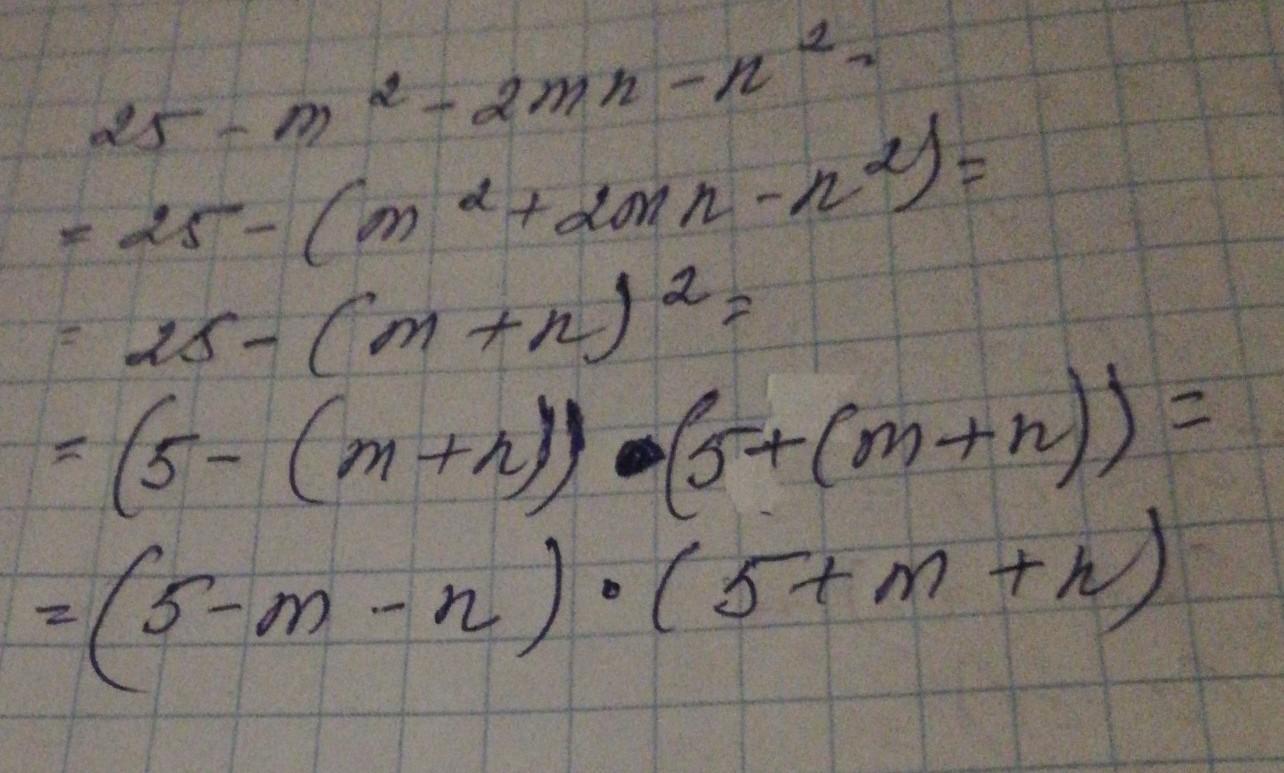 25 - m² - 2mn - n² -
= 25 - (m² + 2mn - n²) =
= 25 - (m + n)² =
= (5 - (m + n)) • (5 + (m + n)) =
= (5 - m - n) · (5 + m + n)